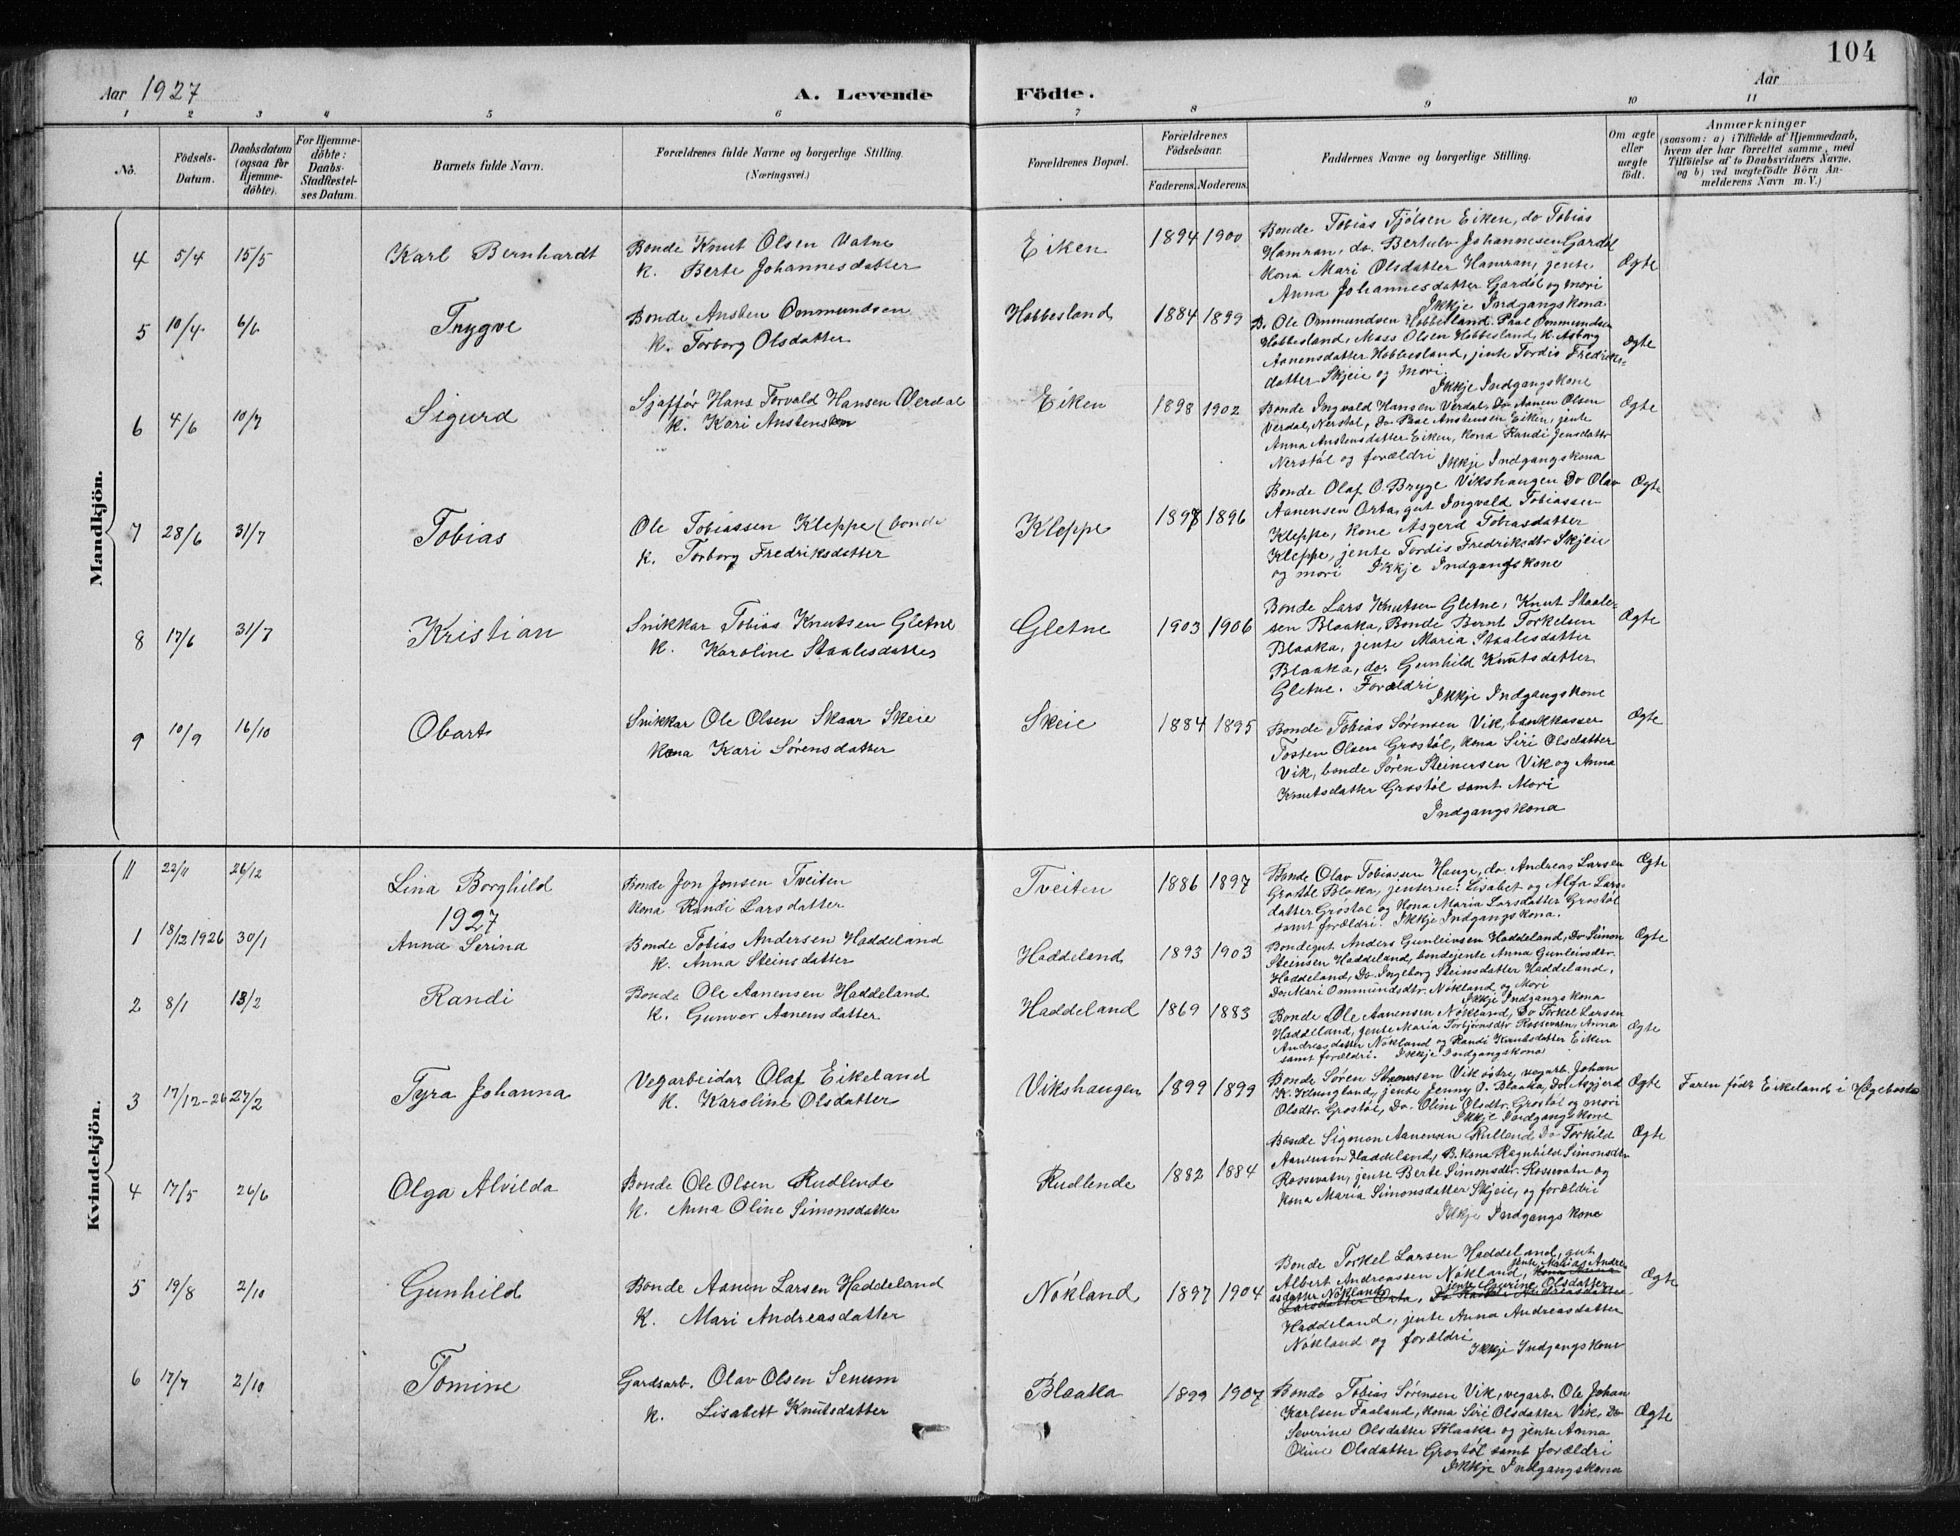 104
Aar 1927
A. Levende Födte.
Aar
1 2 3 4 5 6 7 8 9 10 11
No.
Födsels-
Datum.
Daabsdatum
(ogsaa for
Hjemme-
döbte).
For Hjemme-
döbte:
Daabs-
Stadfæstel-
ses Datum.
Barnets fulde Navn.
Forældrenes fulde Navne og borgerlige Stilling.
(Næringsvei.)
Forældrenes Bopæl.
Forældrenes
Födselsaar.
Faderens. Moderens.
Faddernes Navne og borgerlige Stilling.
Om ægte
eller
uægte
födt.
Anmærkninger
(saasom: a) i Tilfælde af Hjemmedaab,
hvem der har forrettet samme, med
Tilföielse af to Daabsvidners Navne.
og b) ved uægtefödte Börn An-
melderens Navn m. V.)
Mandkjön.
4 5/4 15/5 Karl Bernhardt
Bonde Knut Olsen Vatne
k. Berte Johannesdatter
Eiken 1894 1900
Bonde Tobias Tjølsen Eiken, do Tobias
Hamran, do. Bertulv Johannesen Gardøl
kona Mari Olsdatter Hamran, jente
Anna Johannesdatter Gardøl og mori
Ikkje Indgangskona
Ægte
5 10/4 6/6 Trygve
Bonde Ansten Ommundsen
k. Torborg Olsdatter
Hobbesland 1884 1899
B. Ole Ommundsen Hobbesland. Paal Ommundsen
Hobbesland, Mass Olsen Hobbesland, k. Asborg
Aanensdatter Hobbesland, jente Tordis Fredriks-
datter Skjeie og mori.
Ikkje Indgangskone
Ægte
6 4/6 10/7 Sigurd
Sjaffør Hans Torvald Hansen Verdal
k. Kari Anstensen
Eiken 1898 1902
Bonde Ingvald Hansen Verdal, Do Aanen Olsen
Verdal, Nerstøl, Do Paal Anstensen Eiken, jente
Anna Anstensdatter Eiken, kona Randi Jensdattr
Nerstøl og forældri Ikkje Indgangskona
Ægte
7 28/6 31/7 Tobias
Ole Tobiassen Kleppe (bonde
k. Torborg Fredriksdatter
Kleppe 1897 1896
Bonde Olaf O. Bryge Vikshaugen Do Olav
Aanensen Orta, gut Ingvald Tobiassen
Kleppe, kone Asgerd Tobiasdatter
Kleppe, jente Tordis Fredriksdtr Skjeie
og mori Ikkje Indgangskone
Ægte
8 17/6 31/7 Kristian
Snikkar Tobias Knutsen Gletne
k. Karoline Staalesdatter
Gletne 1903 1906
Bonde Lars Knutsen Gletne, Knut Staale-
sen Blaaka, Bonde Bernt Torkelsen
Blaaka, jente Maria Staalesdatter
Blaaka, do. Gunhild Knutsdatter
Gletne. Forældri
Ikkje Indgangskone
Ægte
9 10/9 16/10 Obart
Snikkar Ole Olsen Skaar Skeie
kona Kari Sørensdatter
Skeie 1884 1895
Bonde Tobias Sørensen Vik, bankkasser
Tosten Olsen Grostøl, kona Siri Olsdatter
Vik, bonde Søren Steinersen Vik og Anna
Knutsdatter Grostøl samt Mori
Indgangskona
Ægte
Kvindekjön.
11 22/11 26/12 Lina Borghild
Bonde Jon Jonsen Tveiten
kona Randi Larsdatter
Tveiten 1886 1897
Bonde Olav Tobiassen Hauge, do. Andreas Larsen
Grostøl Blaka, jenterne: Lisabet og Alfa Lars-
datter Grostøl og kona Maria Larsdatter Grostøl
samt forældri. Ikkje Indgangskona.
Ægte
1927
1 18/12 1926 30/1 Anna Serina
Bonde Tobias Andersen Haddeland
k. Anna Steinsdatter
Haddeland 1893 1903
Bondegut Anders Gunleivsen Haddeland, Do Simon
Steinsen Haddeland, bondejente Anna Gunleivsdtr.
Haddeland, Do. Ingeborg Steinsdatter Haddeland,
Do. Mari Ommundsdtr. Nökland og Mori
Ikkje Indgangskona
Ægte
2 8/1 13/2 Randi
Bonde Ole Aanensen Haddeland
k. Gunvor Aanensdatter
Haddeland 1869 1883
Bonde Ole Aanensen Nökland, Do Torkel Larsen
Haddeland, jente Maria Torbjørnsdtr Rossevatn, Anna
Andreasdatter Nökland og Randi Knutsdatter Eiken
samt forældri. Ikkje Indgangskona
Ægte
3 17/12-26 27/2 Tyra Johanna
Vegarbeidar Olaf Eikeland
k. Karoline Olsdatter
Vikshaugen 1899 1899
Bonde Søren Vik østre, vegarb. Johan
K. Klungland, jente Jenny O. Blaaka, Do Asgjerd
Olsdtr. Grostøl, Do. Olim Olsdtr. Grostøl og mori
Ikkje Indgangskone
Ægte
Faren födt Eikeland i Hægebostad
4 17/5 26/6 Olga Alvilda
Bonde Ole Olsen Rudlende
k. Anna Oline Simonsdatter
Rudlende 1882 1884
Bonde Sigmon Aanensen Rulland Do Torkild
Aanensen Haddeland, B. kona Ragnhild Simonsdtr
Rossevatn, jente Berte Simonsdtr. Rossevatn og
kona Maria Simonsdatter Skjeie, og forældri
Ikkje Indgangskone
Ægte
5 19/8 2/10 Gunhild
Bonde Aanen Larsen Haddeland
k. Mari Andreasdatter
Nökland 1897 1904
Bonde Torkel Larsen Haddeland, gut
Albert Andreassen Nökland, jente Matias Andre-
asdatter Nökland jente Severine Olsdatter
Larsdatter Orta,
Haddeland, jente Anna Andreasdatter
Nökland og forældri
Ikkje Indgangskone
Ægte
6 17/7 2/10 Tomine
Gardsarb. Olav Olsen Senum
k. Lisabett Knutsdatter
Blaaka 1899 1907
Bonde Tobias Sørensen Vik, vegarb. Ole Johan
Karlsen Faaland, kona Siri Olsdatter Vik, Do
Severine Olsdatter Blaaka og jente Anna
Oline Olsdatter Grostøl samt forældri
Ikkje Indgangskona
Ægte